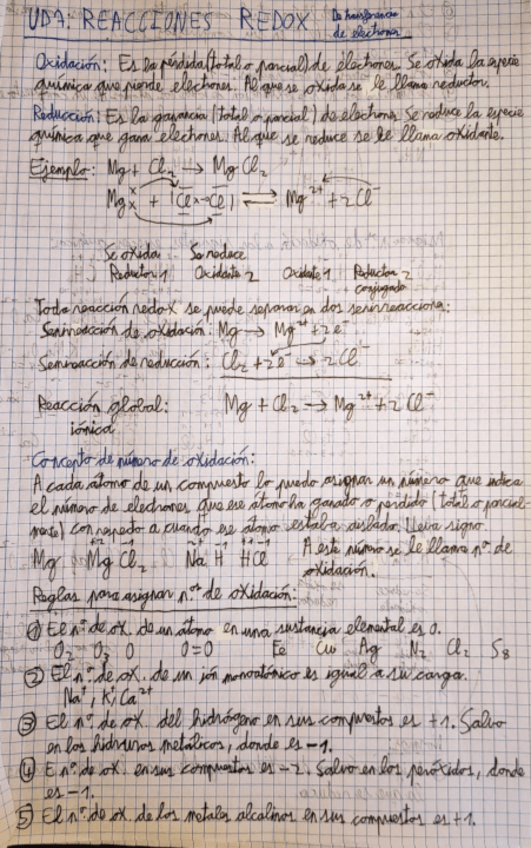 UD7: REACCIONES REDOX De transferencia
de electrones
Oxidación: Es la pérdida (total o parcial) de electrones. Se oxida la especie
química que pierde electrones. Al que se oxida se le llama reductor.
Reducción: Es la ganancia (total o parcial) de electrones. Se reduce la especie
química que gana electrones. Al que se reduce se le llama oxidante.
Ejemplo: Mg + Cl₂ → MgCl₂
Mg + |Cl Cl| ⇌ Mg²⁺ + 2Cl⁻
Se oxida Se reduce
Reductor 1 Oxidante 2 Oxidante 1 Reductor 2
conjugado
Toda reacción redox se puede separar en dos semirreacciones:
Semirreacción de oxidación: Mg → Mg²⁺ + 2e⁻
Semireacción de reducción: Cl₂ + 2e⁻ → 2Cl⁻
Reacción global: Mg + Cl₂ → Mg²⁺ + 2Cl⁻
iónica
Concepto de número de oxidación:
A cada átomo de un compuesto lo puedo asignar un número que indica
el número de electrones que ese átomo ha ganado o perdido (total o parcial-
mente) con respecto a cuando ese átomo estaba aislado. Lleva signo.
Mg MgCl₂ NaH HCl A este número se le llama nº de
oxidación.
Reglas para asignar n.ºˢ de oxidación:
① El nº de ox. de un átomo en una sustancia elemental es 0.
O₂ O₃ O O=O Fe Cu Ag N₂ Cl₂ S₈
② El nº de ox. de un ión monoatómico es igual a su carga.
Na⁺, K⁺, Ca²⁺
③ El nº de ox. del hidrógeno en sus compuestos es +1. Salvo
en los hidruros metálicos, donde es -1.
④ E nº de ox. en sus compuestos es -2. Salvo en los peróxidos, donde
es -1.
⑤ El nº de ox. de los metales alcalinos en sus compuestos es +1.